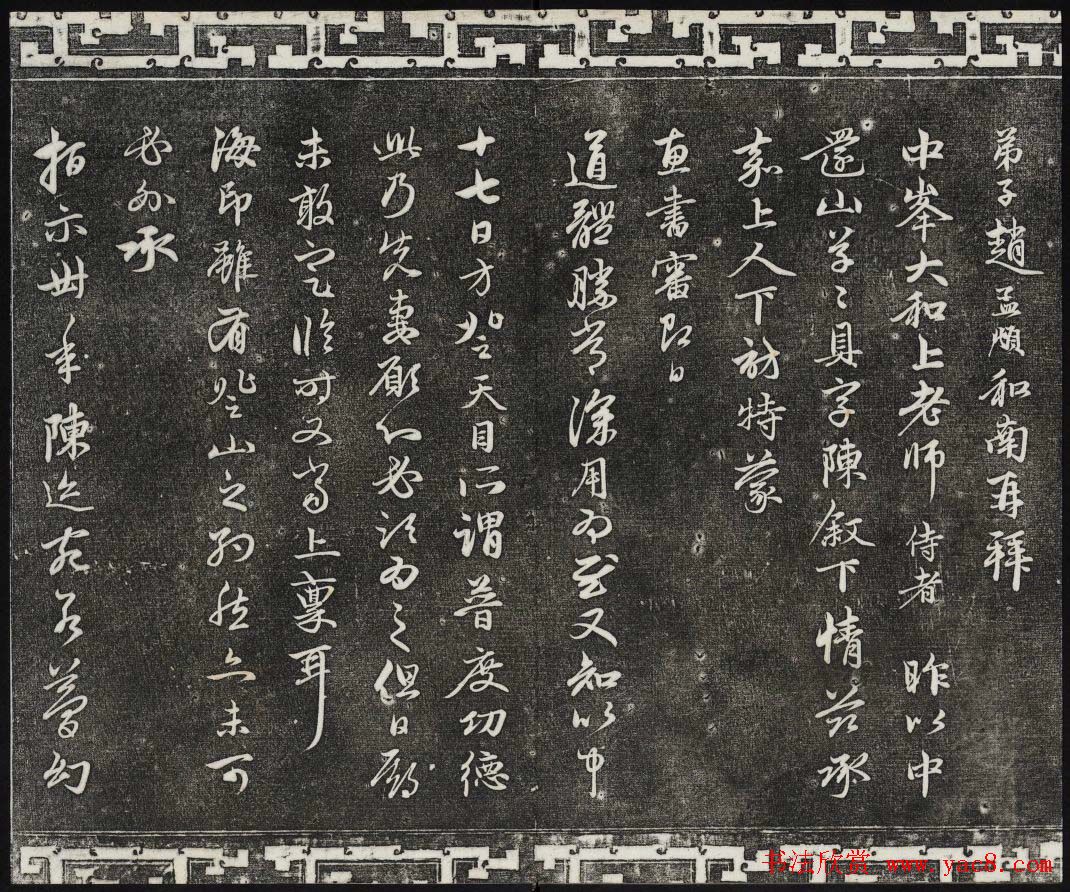 弟子趙孟頫和南再拜
中峯大和上老師 侍者 昨以中
還山草々具字陳叙下情茲承
嘉上人下訪特蒙
惠書審即日
道體勝常深用為慰又知以中
十七日方登天目所謂普度功德
此乃先妻願心必須為之但日期
未敢定臨時又當上稟耳
海印雖有登山之約然亦未可
必承
指示卅年陳迹宛若夢幻
书法欣赏 www.yac8.com